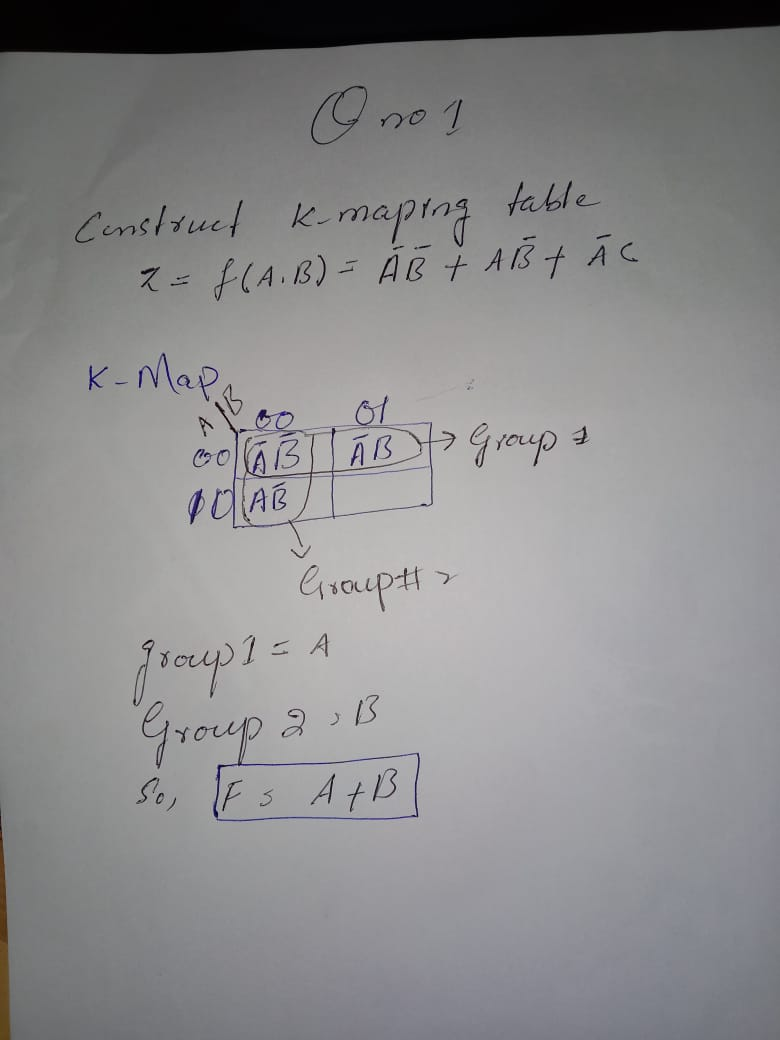 Q no 1
Construct K-maping table
Z = f(A.B) = ĀB̄ + AB̄ + ĀC
K-Map
A\B 00 01
00 ĀB̄ ĀB → Group 1
10 AB̄
Group # 2
group 1 = A
Group 2 = B
So, F = A+B